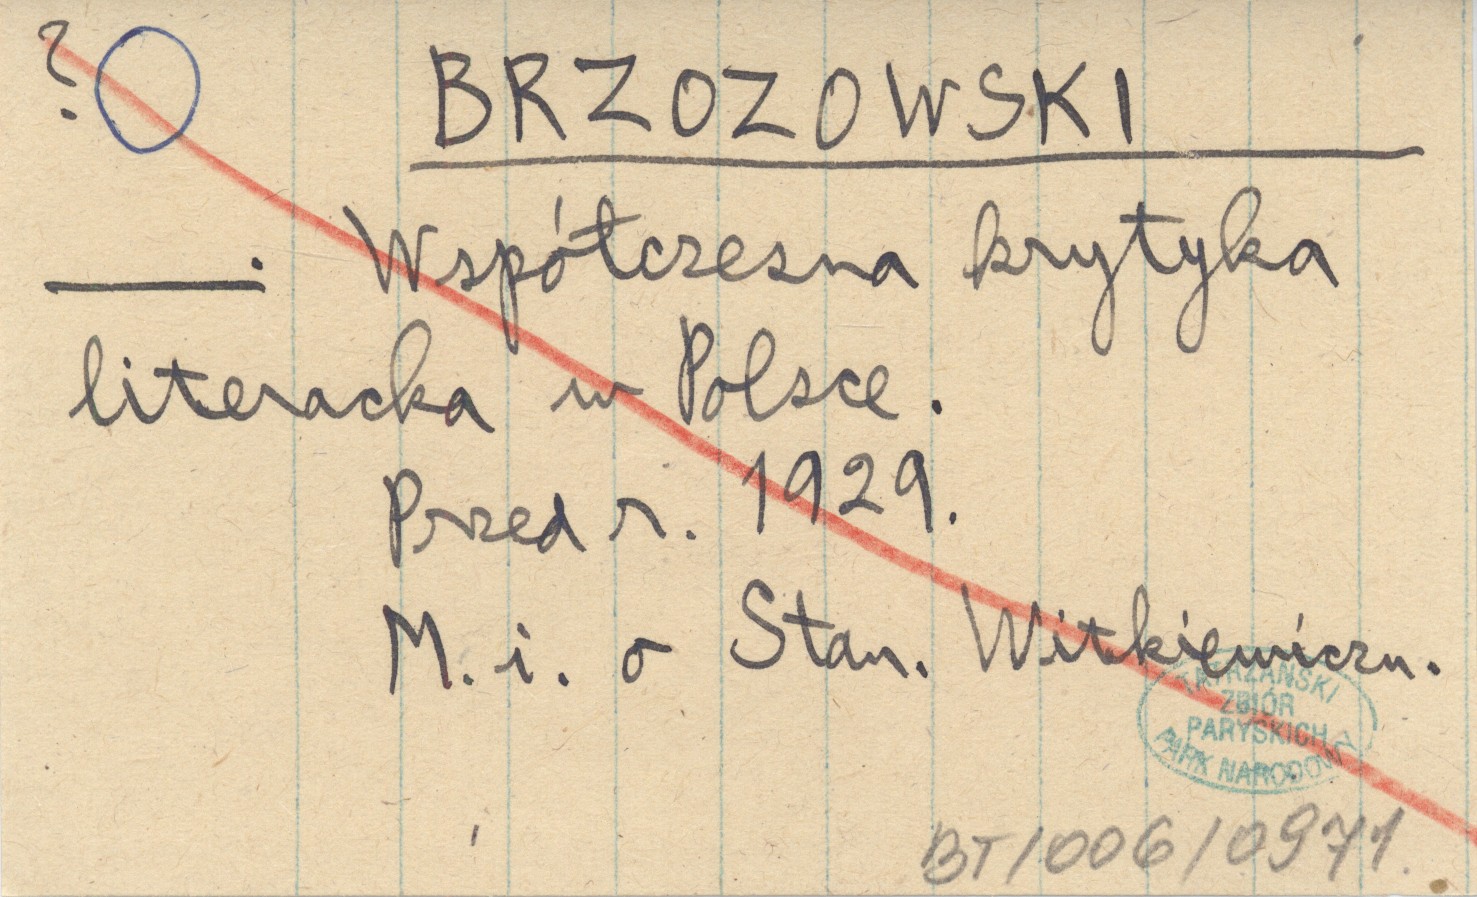 ? BRZOZOWSKI
____. Współczesna krytyka
literacka w Polsce.
Przed r. 1929.
M. i. o Stan. Witkiewiczu.
TATRZAŃSKI
ZBIÓR
PARYSKICH
PARK NARODOWY
BT/006/0971.